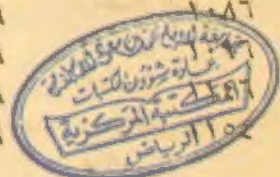 ١٠٨٦
جامعة الإمام محمد بن سعود الإسلامية
عمادة شؤون المكتبات
المكتبة المركزية
الرياض